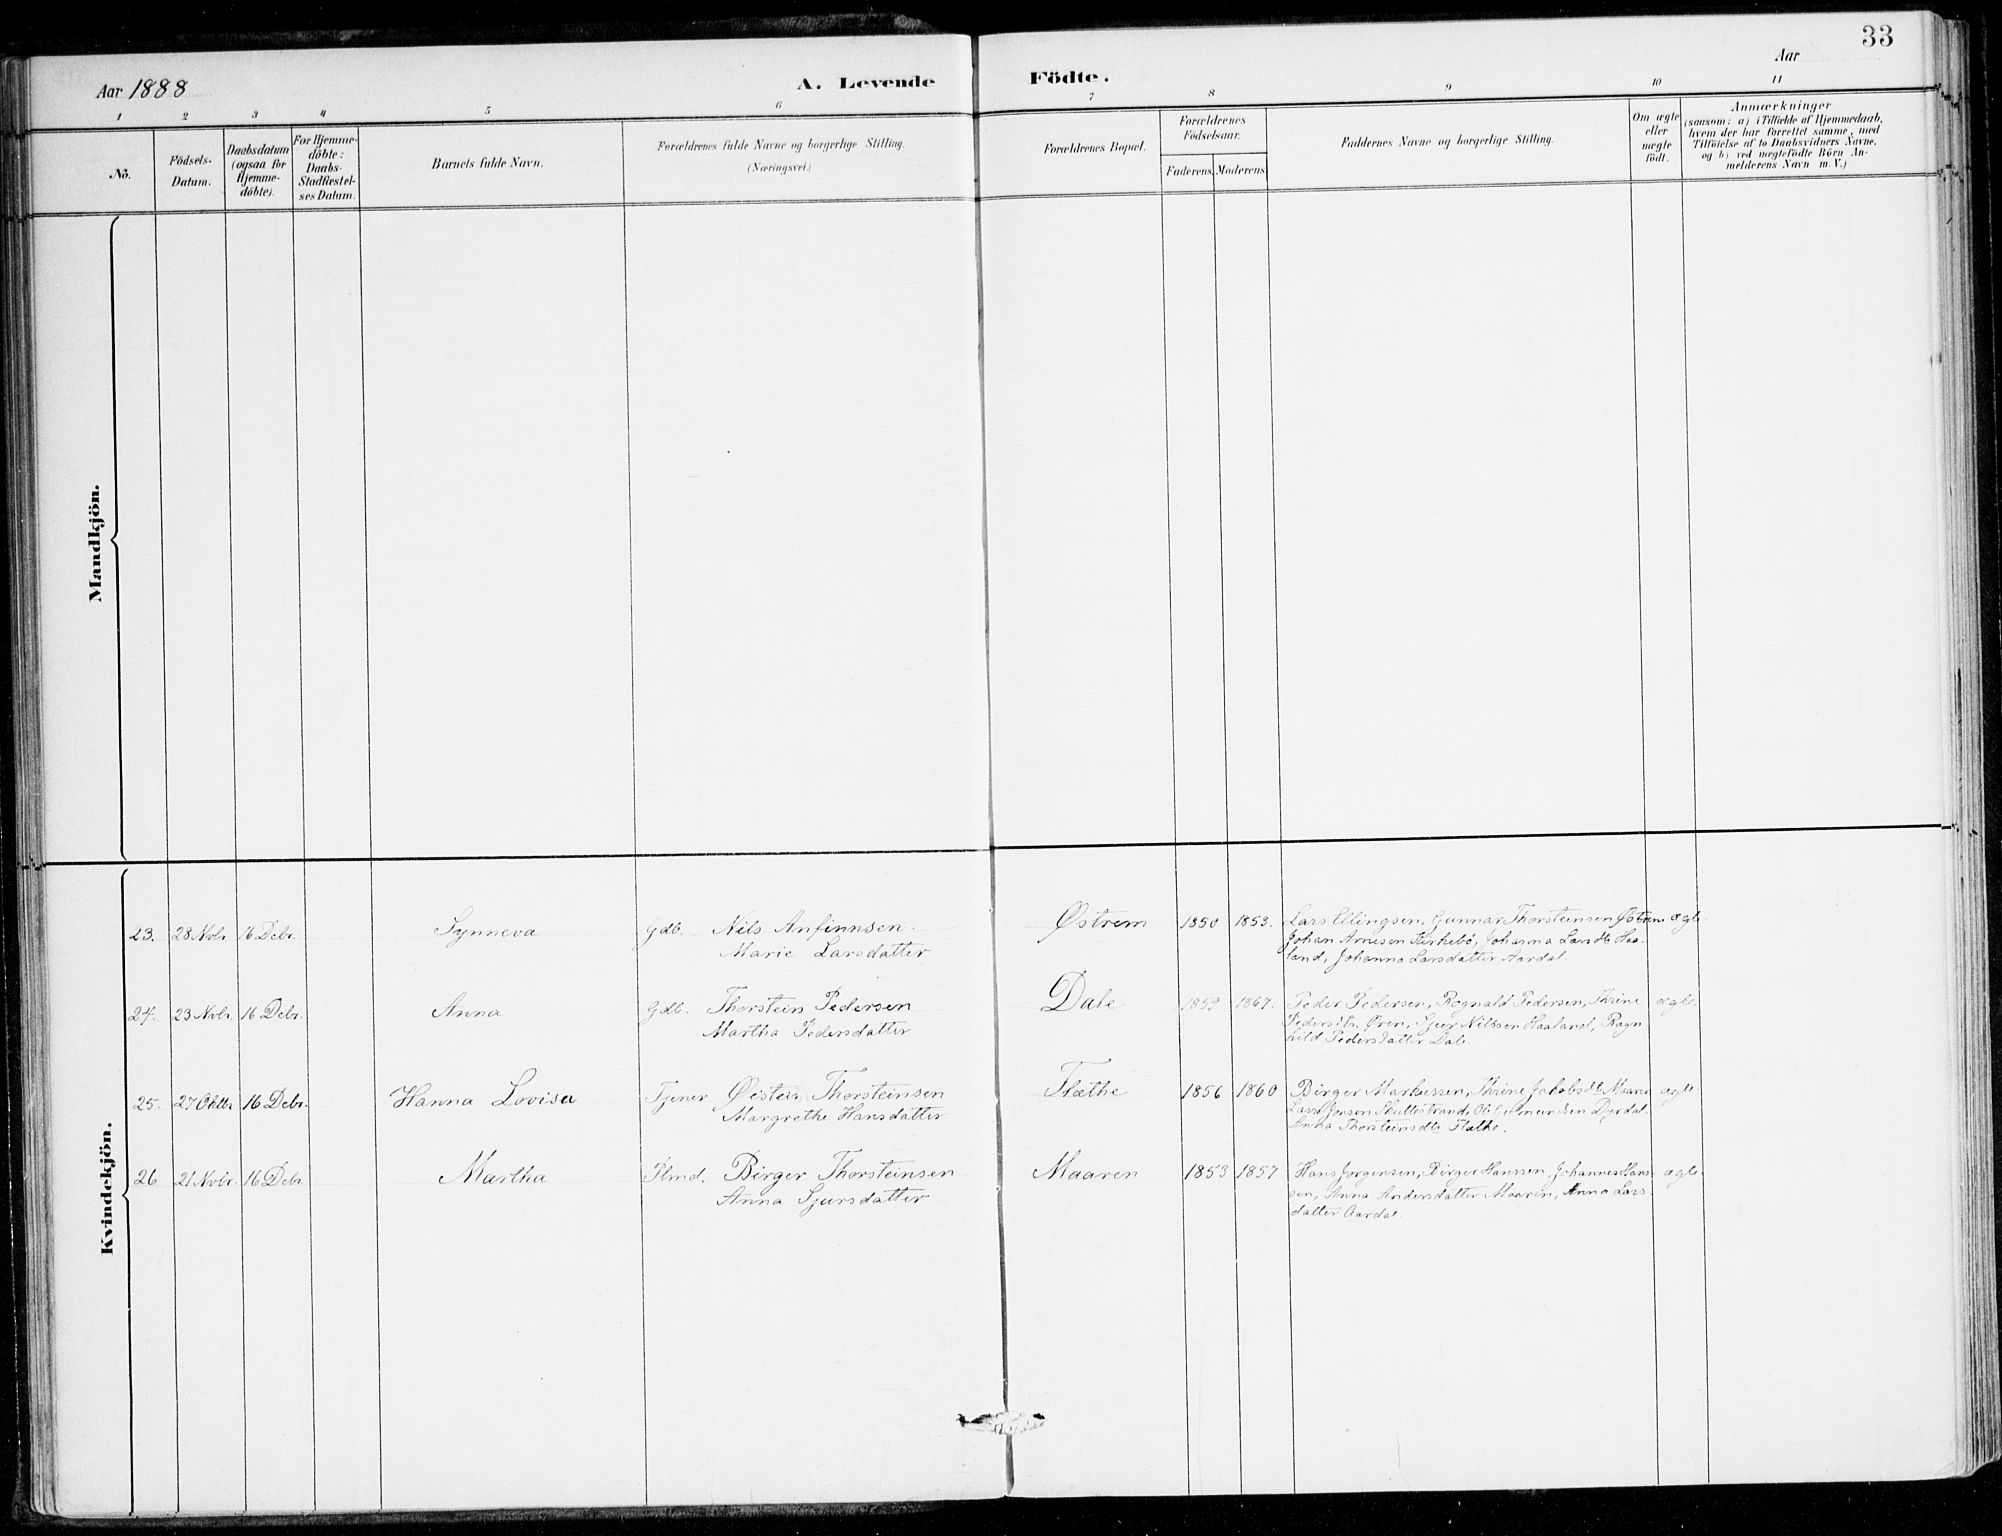 33
Aar 1888
A. Levende
Födte.
Aar
1 2 3 4 5 6 7 8 9 10 11
No.
Födsels-
Datum.
Daabsdatum
(ogsaa för
Hjemme-
döbte).
For Hjemme-
döbte:
Daabs-
Stadfæstel-
ses Datum.
Barnets fulde Navn.
Forældrenes fulde Navne og borgerlige Stilling.
(Næringsvei.)
Forældrenes Bopæl.
Forældrenes
Födselsaar.
Faderens. Moderens.
Faddernes Navne og borgerlige Stilling.
Om ægte
eller
uægte
födt.
Anmærkninger
(saasom: a) i Tilfælde af Hjemmedaab,
hvem der har forrettet samme, med
Tilföielse af to Daabsvidners Navne.
og b) ved uægtefödte Börn An-
melderens Navn m. V.)
Mandkjön.
Kvindekjön.
23. 28 Novbr. 16 Debr. Synneva Gdb. Nils Anfinnsen. Østrem 1850 1853. Lars Ellingsen, Gunnar Thorsteinsen Østrem ægte.
Marie Larsdatter Johan Arnesen Kirkebö, Johanna Larsdtr Haa-
land, Johanna Larsdatter Aardal.
24. 23 Novbr. 16 Debr. Anna Gdb. Thorstein Pedersen Dale 1859 1867. Peder Pedersen, Rognald Pedersen, Thrine ægte.
Martha Pedersdatter Pedersdtr. Øren, Sjur Nilssen Haaland, Ragn
hild Pedersdatter Dale.
25. 27 Oktbr. 16 Debr. Hanna Lovisa Tjener Øistein Thorsteinsen Flæthe 1856 1860 Birger Markussen, Thrine Jakobsdtr Maaren ægte
Margrethe Hansdatter Lasse Jensen Dyrdal.
Anna Thorsteinsdtr Flæthe.
26 21 Novbr. 16 Debr. Martha Birger Thorsteinsen Maaren 1853 1857 Hans Jørgensen, Birger Hanssen, Johannes Hans- ægte.
Anna Sjursdatter sen, Anna Andersdatter Maaren, Anna Lars-
datter Aardal.